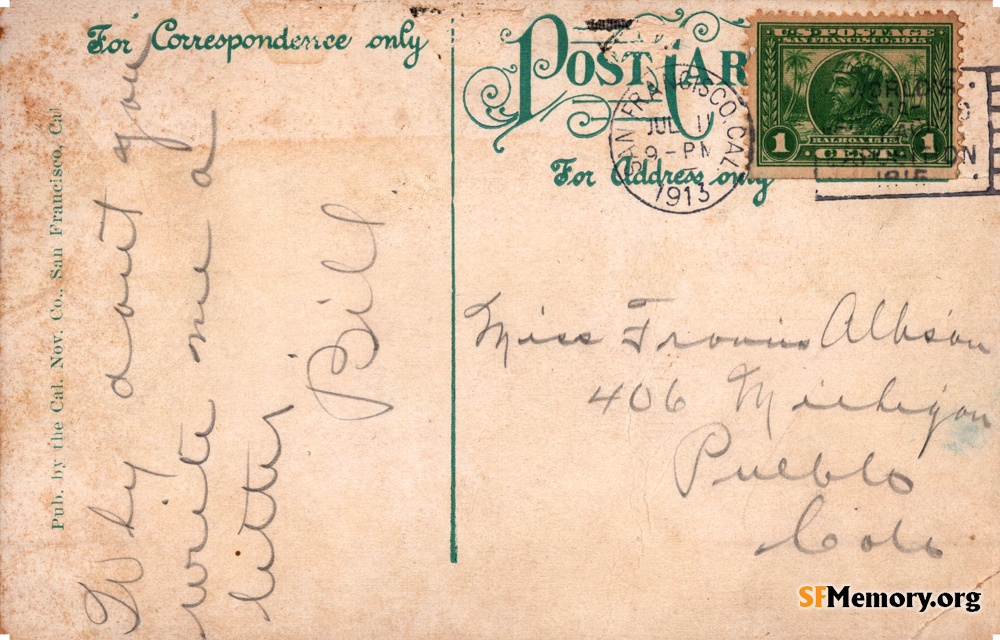 For Correspondence only
POST CAR
For Address only
Pub. by the Cal. Nov. Co., San Francisco, Cal
Why dont you
write me a
letter
Bill
SAN FRANCISCO, CAL.
JUL 11
9-PM
1913
U.S. POSTAGE
SAN FRANCISCO 1915
BALBOA 1513
1 CENT 1
1915
Miss Albson
406 Michigan
Pueblo
Colo
SFMemory.org